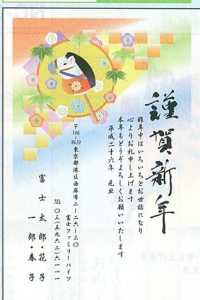 謹賀新年
昨年中はいろいろとお世話になり
心よりお礼申し上げます
本年もどうぞよろしくお願いいたします
平成二十六年 元旦
〒106-8620
東京都港区西麻布
富士ファミリーハイツ
富士太郎・花子
一郎・春子